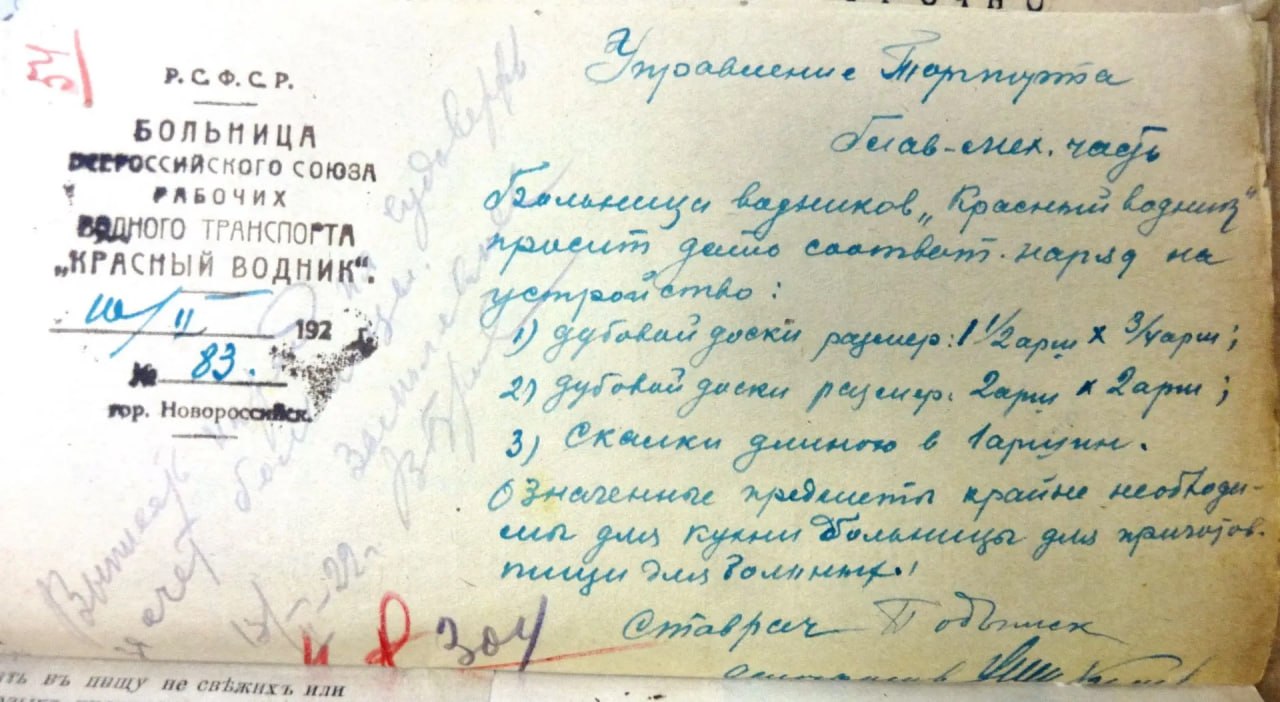 54
Р.С.Ф.С.Р.
БОЛЬНИЦА
ВСЕРОССИЙСКОГО СОЮЗА
РАБОЧИХ
ВОДНОГО ТРАНСПОРТА
„КРАСНЫЙ ВОДНИК“.
10/II 192 г.
№ 83.
гор. Новороссийск.
Управление Торгпорта
Глав-мех. часть
Больница водников „Красный водник“
просит дать соответ. наряд на
устройство:
1) дубовой доски размер: 1 1/2 арш х 3/4 арш;
2) дубовой доски размер. 2 арш х 2 арш;
3) Скалки длиною в 1 аршин.
Означенные предметы крайне необходи-
мы для кухни больницы для приготов.
пищи для больных.
Ставрач
304
счет
22 г.
ть въ пищу не свѣжихъ или